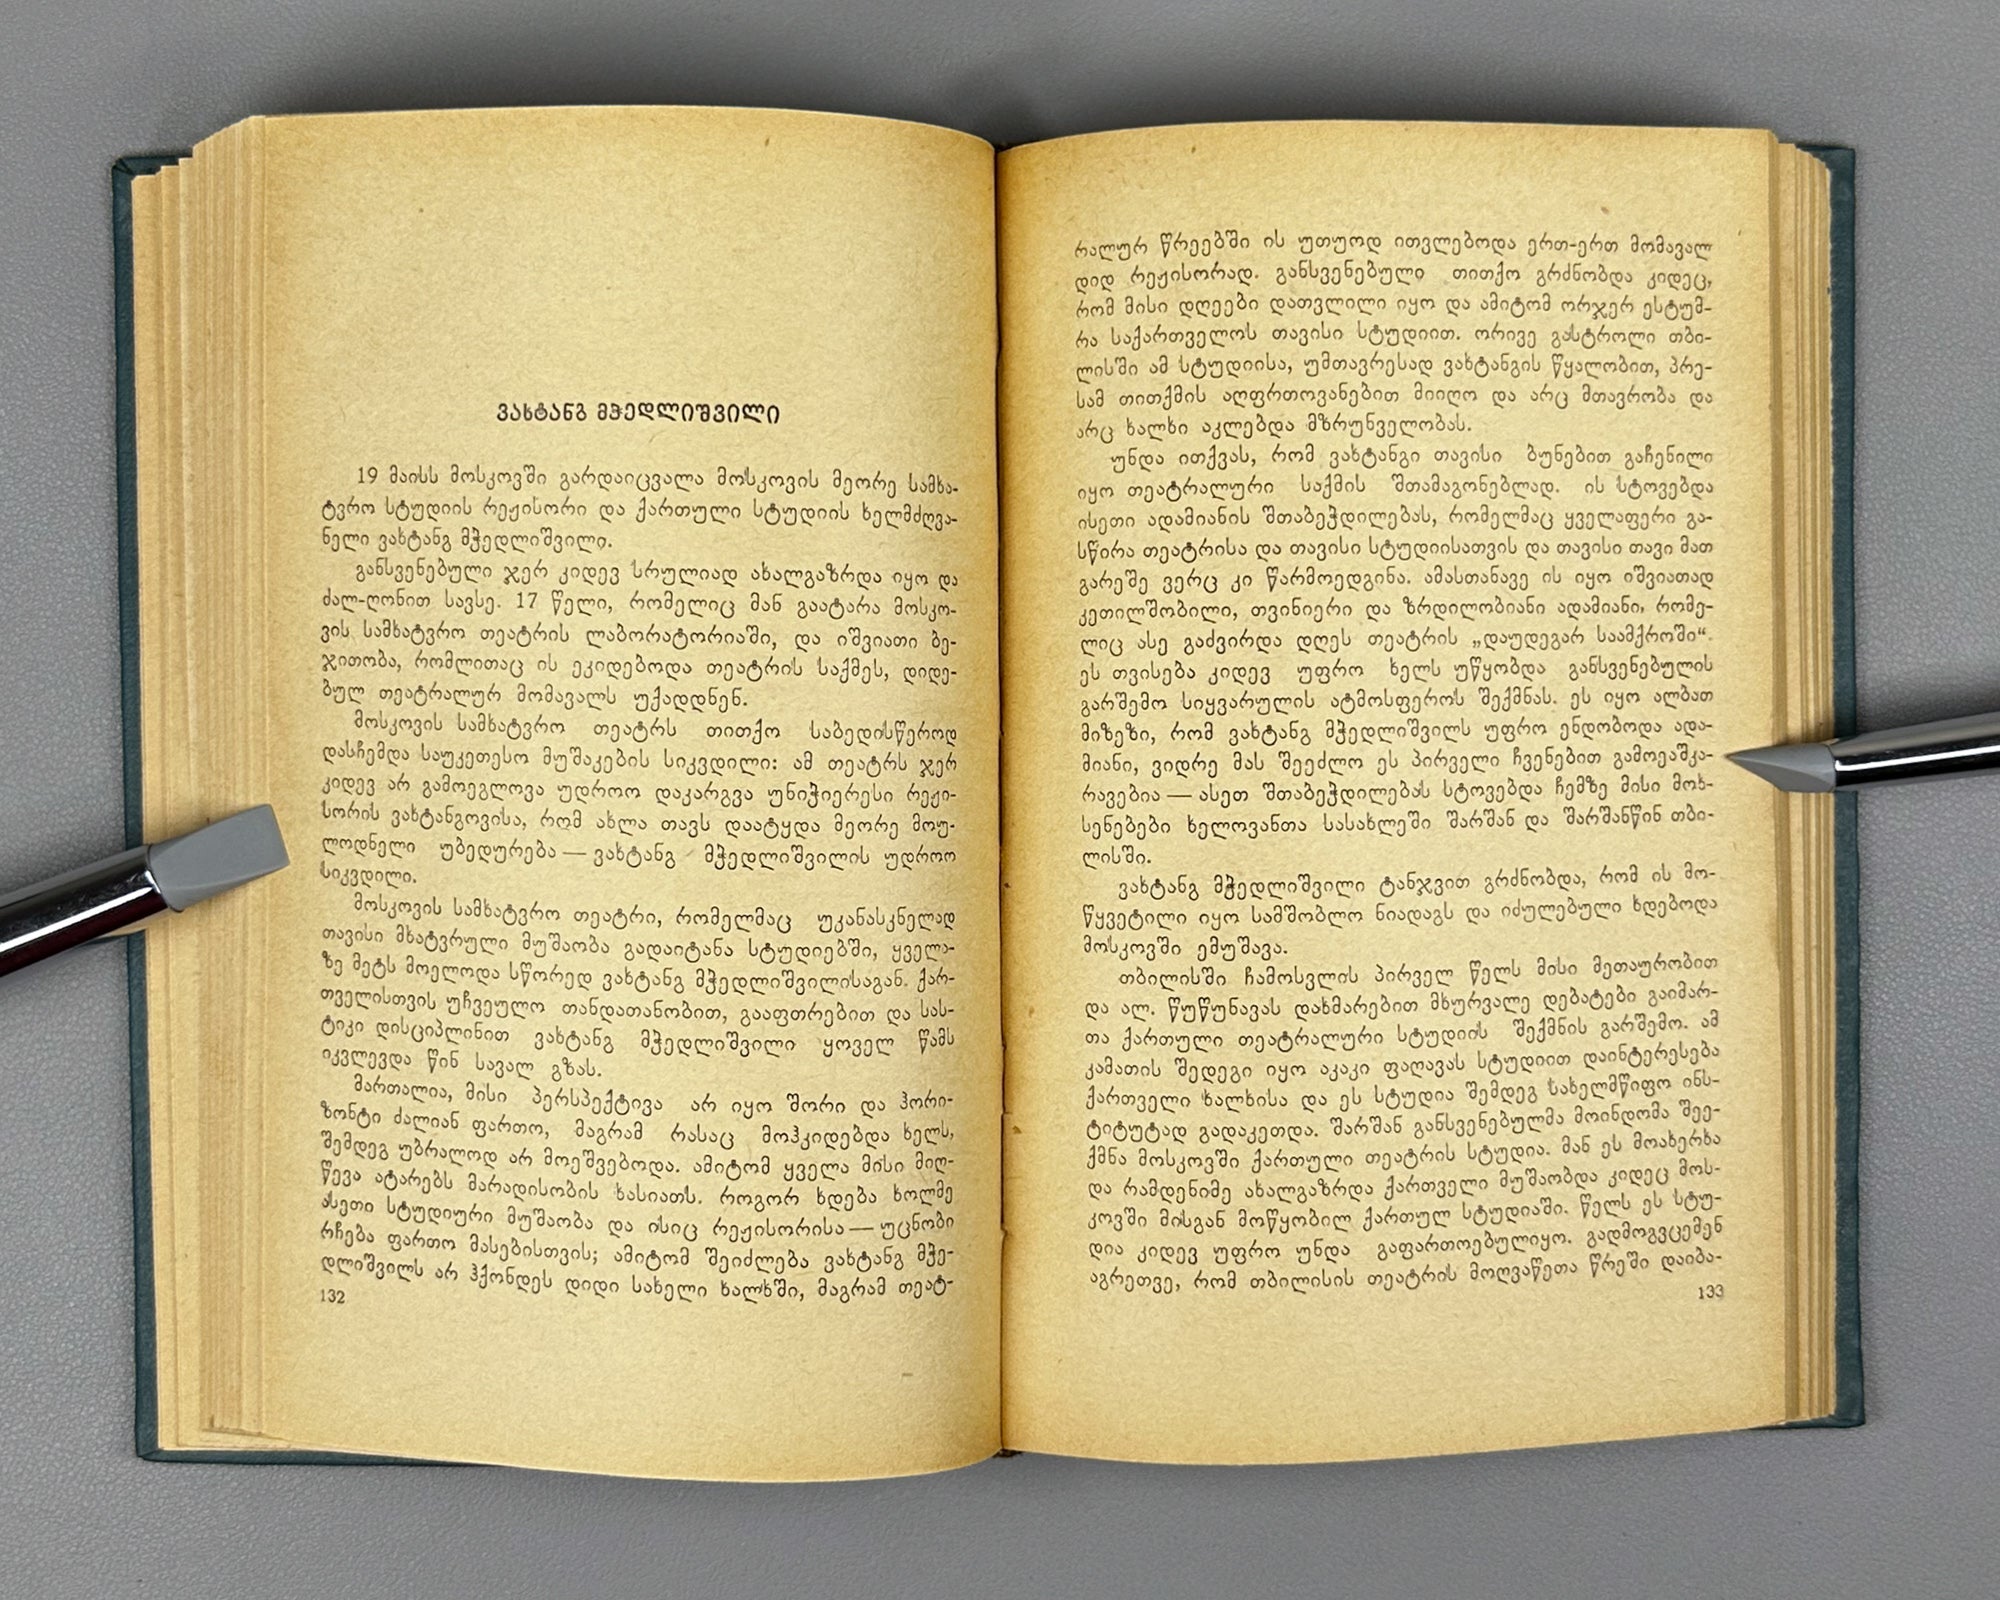 ვახტანგ მჭედლიშვილი
19 მაისს მოსკოვში გარდაიცვალა მოსკოვის მეორე სამხა-
ტვრო სტუდიის რეჟისორი და ქართული სტუდიის ხელმძღვა-
ნელი ვახტანგ მჭედლიშვილი.
განსვენებული ჯერ კიდევ სრულიად ახალგაზრდა იყო და
ძალ-ღონით სავსე. 17 წელი, რომელიც მან გაატარა მოსკო-
ვის სამხატვრო თეატრის ლაბორატორიაში, და იშვიათი ბე-
ჯითობა, რომლითაც ის ეკიდებოდა თეატრის საქმეს, დიდე-
ბულ თეატრალურ მომავალს უქადდნენ.
მოსკოვის სამხატვრო თეატრს თითქო საბედისწეროდ
დასჩემდა საუკეთესო მუშაკების სიკვდილი: ამ თეატრს ჯერ
კიდევ არ გამოეგლოვა უდროო დაკარგვა უნიჭიერესი რეჟი-
სორის ვახტანგოვისა, რომ ახლა თავს დაატყდა მეორე მოუ-
ლოდნელი უბედურება — ვახტანგ მჭედლიშვილის უდროო
სიკვდილი.
მოსკოვის სამხატვრო თეატრი, რომელმაც უკანასკნელად
თავისი მხატვრული მუშაობა გადაიტანა სტუდიებში, ყველა-
ზე მეტს მოელოდა სწორედ ვახტანგ მჭედლიშვილისაგან. ქარ-
თველისთვის უჩვეულო თანდათანობით, გააფთრებით და სას-
ტიკი დისციპლინით ვახტანგ მჭედლიშვილი ყოველ წამს
იკვლევდა წინ სავალ გზას.
მართალია, მისი პერსპექტივა არ იყო შორი და ჰორი-
ზონტი ძალიან ფართო, მაგრამ რასაც მოჰკიდებდა ხელს,
შემდეგ უბრალოდ არ მოეშვებოდა. ამიტომ ყველა მისი მიღ-
წევა ატარებს მარადისობის ხასიათს. როგორ ხდება ხოლმე
ასეთი სტუდიური მუშაობა და ისიც რეჟისორისა — უცნობი
რჩება ფართო მასებისთვის; ამიტომ შეიძლება ვახტანგ მჭე-
დლიშვილს არ ჰქონდეს დიდი სახელი ხალხში, მაგრამ თეატ-
132
რალურ წრეებში ის უთუოდ ითვლებოდა ერთ-ერთ მომავალ
დიდ რეჟისორად. განსვენებული თითქო გრძნობდა კიდეც,
რომ მისი დღეები დათვლილი იყო და ამიტომ ორჯერ ესტუმ-
რა საქართველოს თავისი სტუდიით. ორივე გასტროლი თბი-
ლისში ამ სტუდიისა, უმთავრესად ვახტანგის წყალობით, პრე-
სამ თითქმის აღფრთოვანებით მიიღო და არც მთავრობა და
არც ხალხი აკლებდა მზრუნველობას.
უნდა ითქვას, რომ ვახტანგი თავისი ბუნებით გაჩენილი
იყო თეატრალური საქმის შთამაგონებლად. ის სტოვებდა
ისეთი ადამიანის შთაბეჭდილებას, რომელმაც ყველაფერი გა-
სწირა თეატრისა და თავისი სტუდიისათვის და თავისი თავი მათ
გარეშე ვერც კი წარმოედგინა. ამასთანავე ის იყო იშვიათად
კეთილშობილი, თვინიერი და ზრდილობიანი ადამიანი, რომე-
ლიც ასე გაძვირდა დღეს თეატრის „დაუდეგარ საამქროში“.
ეს თვისება კიდევ უფრო ხელს უწყობდა განსვენებულის
გარშემო სიყვარულის ატმოსფეროს შექმნას. ეს იყო ალბათ
მიზეზი, რომ ვახტანგ მჭედლიშვილს უფრო ენდობოდა ადა-
მიანი, ვიდრე მას შეეძლო ეს პირველი ჩვენებით გამოეაშკა-
რავებია — ასეთ შთაბეჭდილებას სტოვებდა ჩემზე მისი მოხ-
სენებები ხელოვანთა სასახლეში შარშან და შარშანწინ თბი-
ლისში.
ვახტანგ მჭედლიშვილი ტანჯვით გრძნობდა, რომ ის მო-
წყვეტილი იყო სამშობლო ნიადაგს და იძულებული ხდებოდა
მოსკოვში ემუშავა.
თბილისში ჩამოსვლის პირველ წელს მისი მეთაურობით
და ალ. წუწუნავას დახმარებით მხურვალე დებატები გაიმარ-
თა ქართული თეატრალური სტუდიის შექმნის გარშემო. ამ
კამათის შედეგი იყო აკაკი ფაღავას სტუდიით დაინტერესება
ქართველი ხალხისა და ეს სტუდია შემდეგ სახელმწიფო ინს-
ტიტუტად გადაკეთდა. შარშან განსვენებულმა მოინდომა შეე-
ქმნა მოსკოვში ქართული თეატრის სტუდია. მან ეს მოახერხა
და რამდენიმე ახალგაზრდა ქართველი მუშაობდა კიდეც მოს-
კოვში მისგან მოწყობილ ქართულ სტუდიაში. წელს ეს სტუ-
დია კიდევ უფრო უნდა გაფართოებულიყო. გადმოგვცემენ
აგრეთვე, რომ თბილისის თეატრის მოღვაწეთა წრეში დაიბა-
133